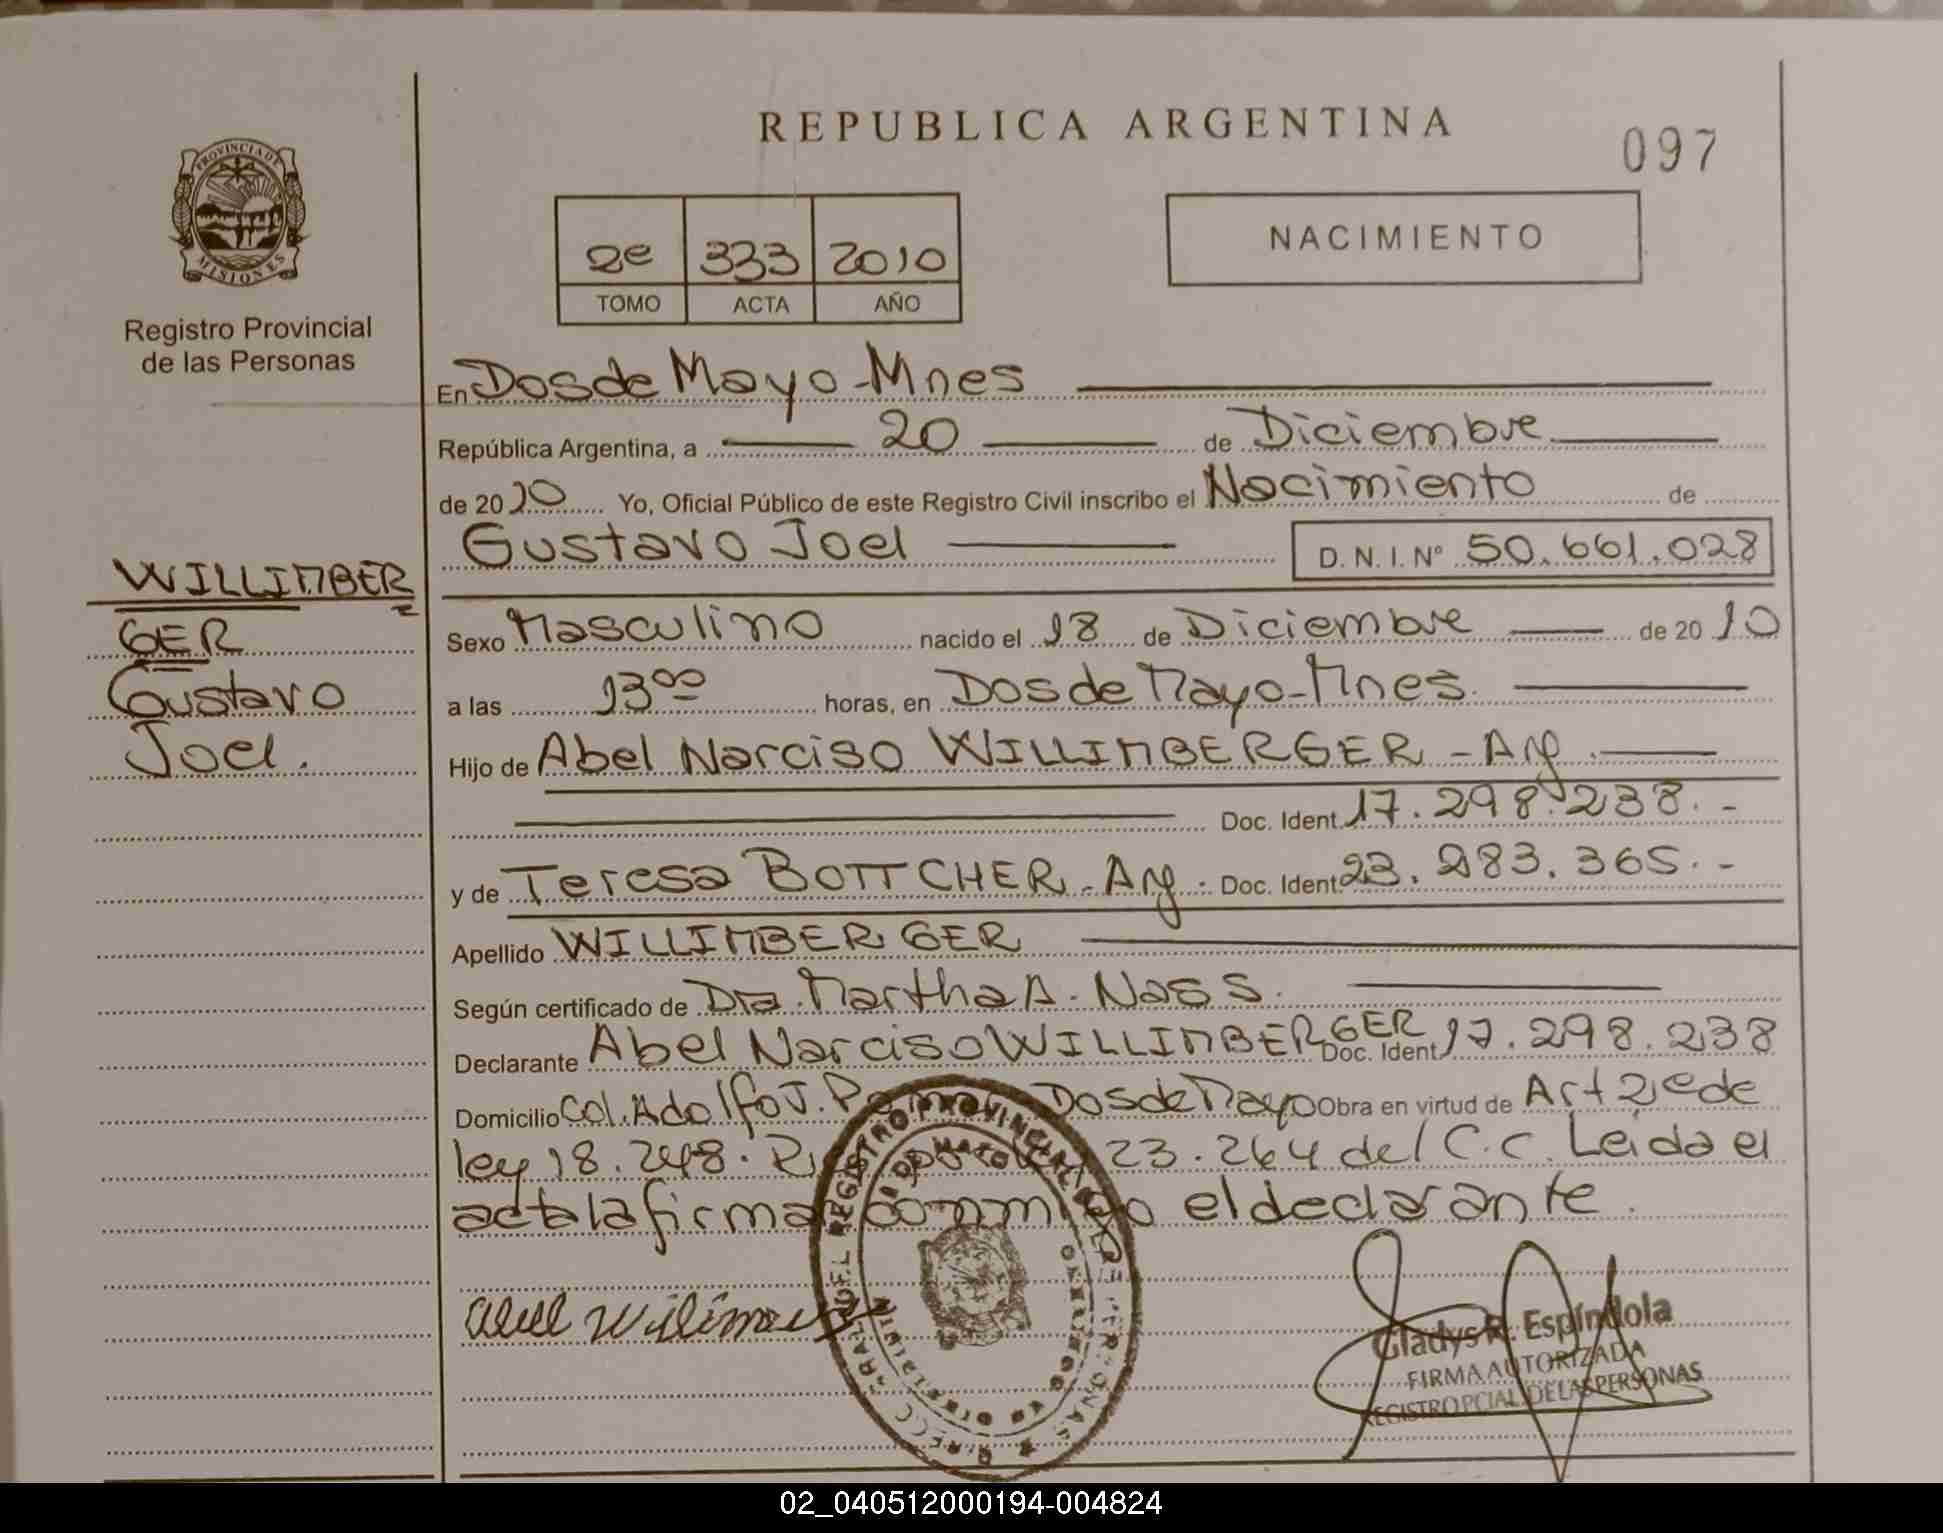 REPUBLICA ARGENTINA
097
PROVINCIA DE
MISIONES
Registro Provincial
de las Personas
2e 333 2010
TOMO ACTA AÑO
NACIMIENTO
En Dos de Mayo - Mnes
República Argentina, a 20 de Diciembre
de 2010 Yo, Oficial Público de este Registro Civil inscribo el Nacimiento de
Gustavo Joel D. N. I. Nº 50.661.028
WILLIMBER
GER
Gustavo
Joel.
Sexo Masculino nacido el 18 de Diciembre de 2010
a las 13 00 horas, en Dos de Mayo - Mnes.
Hijo de Abel Narciso WILLIMBERGER - Arg.
Doc. Ident. 17.298.238.-
y de Teresa BOTTCHER - Arg. Doc. Ident. 23.283.365.-
Apellido WILLIMBERGER
Según certificado de Dra. Martha A. Nass.
Declarante Abel Narciso WILLIMBERGER Doc. Ident. 17.298.238
Domicilio Col. Adolfo J. Dos de Mayo Obra en virtud de Art 2 de
ley 18.248. 23.264 del C.C. Leida el
acta la firma conmigo el declarante.
Abel
Gladys R. Espíndola
FIRMA AUTORIZADA
REGISTRO PCIAL. DE LAS PERSONAS
02_040512000194-004824